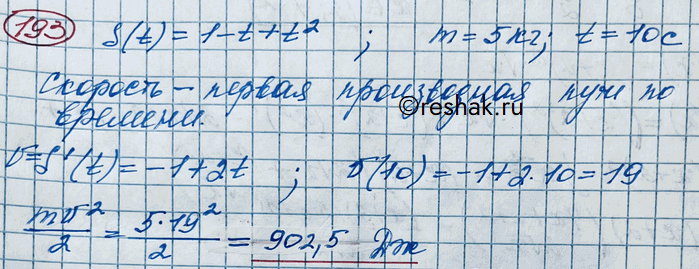 193 S(t) = 1 - t + t² ; m = 5 кг; t = 10 с
Скорость – первая производная пути по
времени.
©reshak.ru
v = S'(t) = -1 + 2t ; v(10) = -1 + 2·10 = 19
mv²/2 = 5·19²/2 = 902,5 Дж